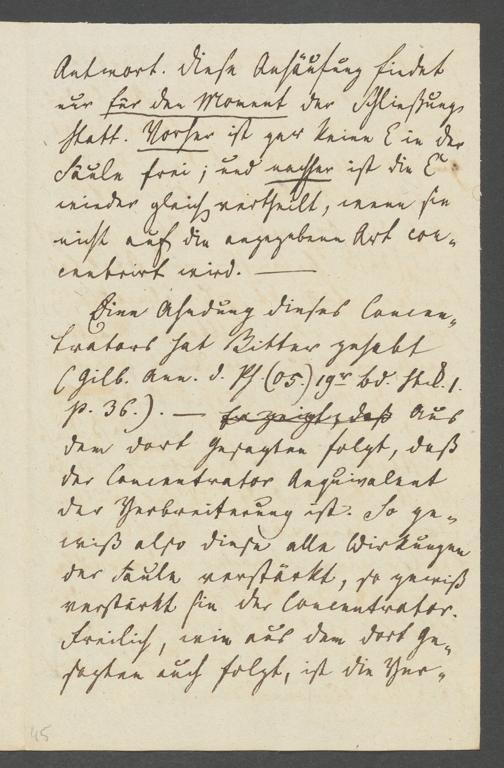 Antwort. Diese Anhäufung findet
nur für den Moment der Schließung
statt. Vorher ist gar keine E in der
Säule frei; und nachher ist die E
wieder gleich vertheilt, wenn sie
nicht auf die angegebene Art con-
centrirt wird. —
Eine Ahndung dieses Concen-
trators hat Ritter gehabt
(Gilb. Ann. d. Ph. (05.) 19r Bd. St. 1.
p. 36.). — Er zeigt, daß Aus
dem dort Gesagten folgt, daß
der Concentrator Aequivalent
der Verbreiterung ist. So ge-
wiß also diese alle Wirkungen
der Säule verstärkt, so gewiß
verstärkt sie der Concentrator.
Freilich, wie aus dem dort Ge-
sagten auch folgt, ist die Ver-
45